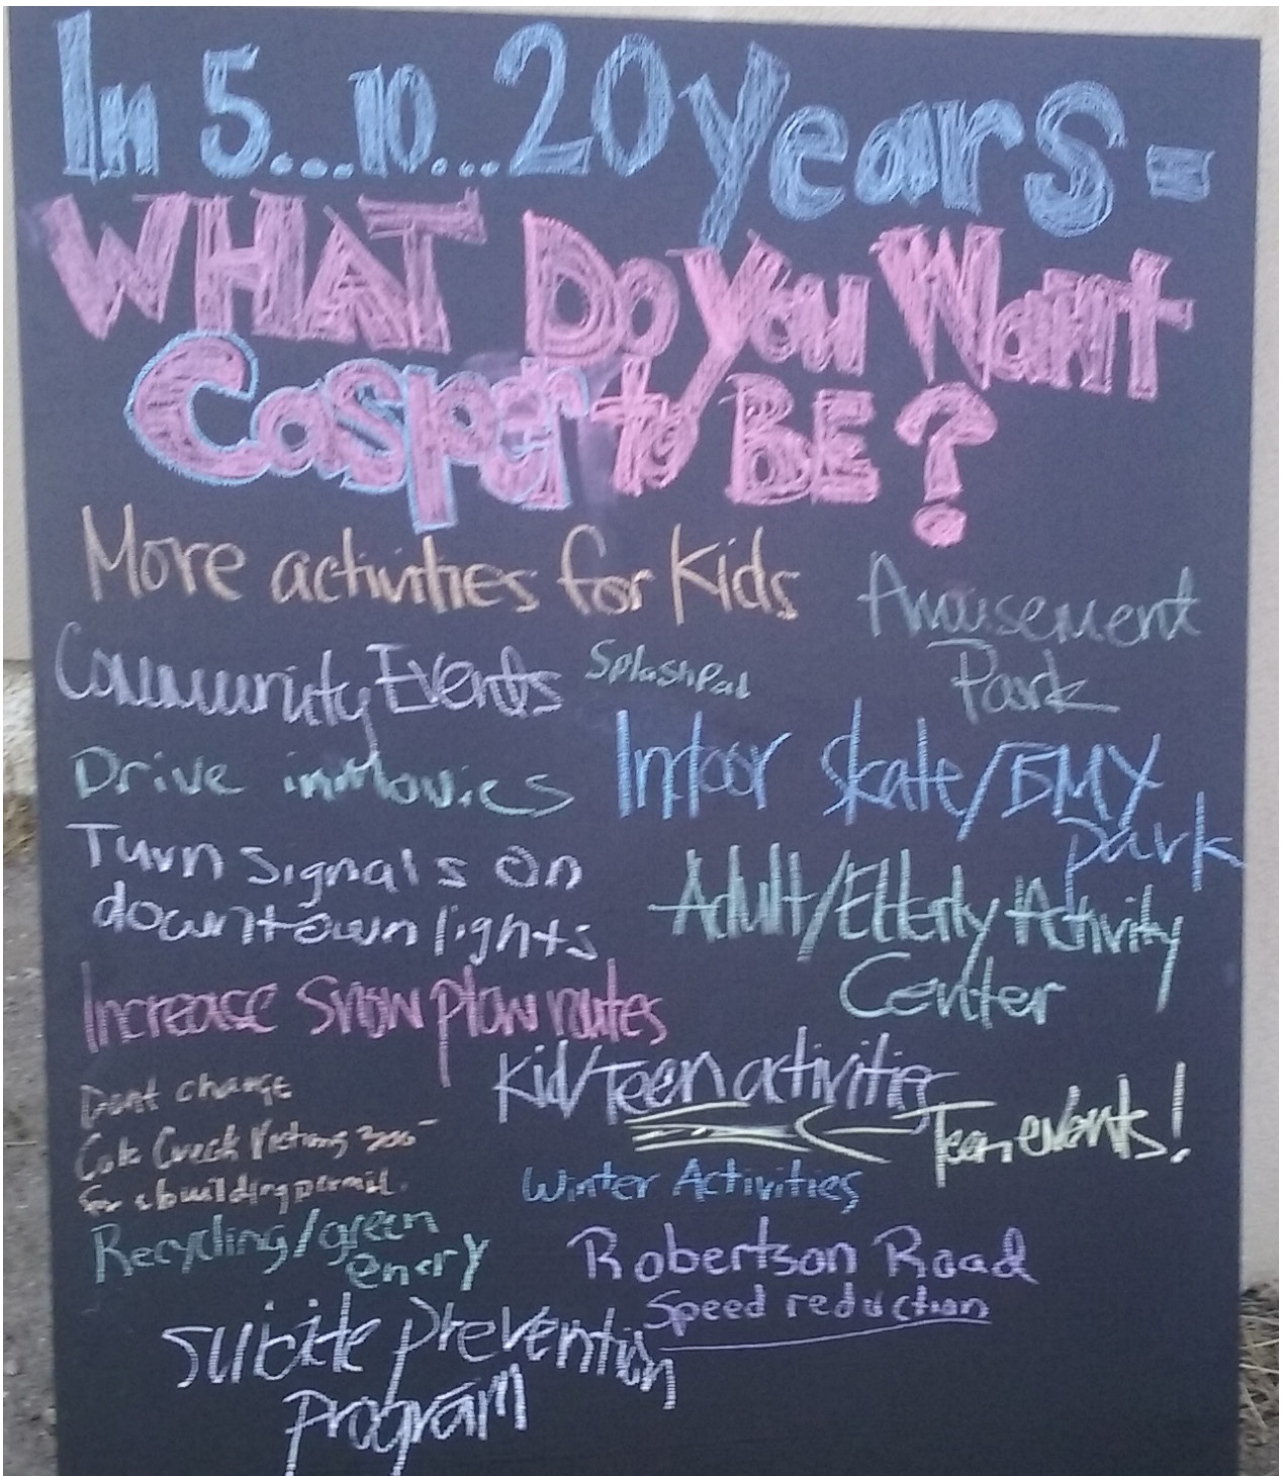 In 5...10...20 years -
WHAT Do you Want
Casper to BE?
More activities for Kids
Amusement
Park
Community Events
SplashPad
Drive in Movies
Indoor Skate/BMX
park
Turn signals on
downtown lights
Adult/Elderly Activity
Center
Increase snow plow routes
Kid/Teen activities
Teen events!
Dont change
Cole Creek 300
for a building permit.
Winter Activities
Recycling/green
enery
Robertson Road
Speed reduction
Suicide prevention
program